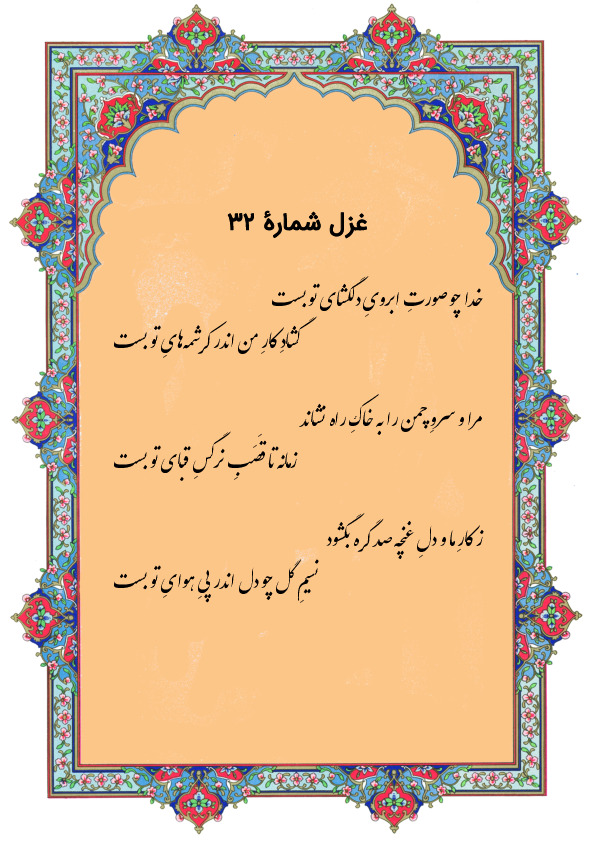 غزل شمارهٔ ۳۲
خدا چو صورتِ ابرویِ دلگشای تو بست
گشادِ کارِ من اندر کرشمه‌هایِ تو بست
مرا و سروِ چمن را به خاکِ راه نشاند
زمانه تا قَصَبِ نرگسِ قبای تو بست
ز کارِ ما و دلِ غنچه صد گره بگشود
نسیمِ گل چو دل اندر پیِ هوایِ تو بست